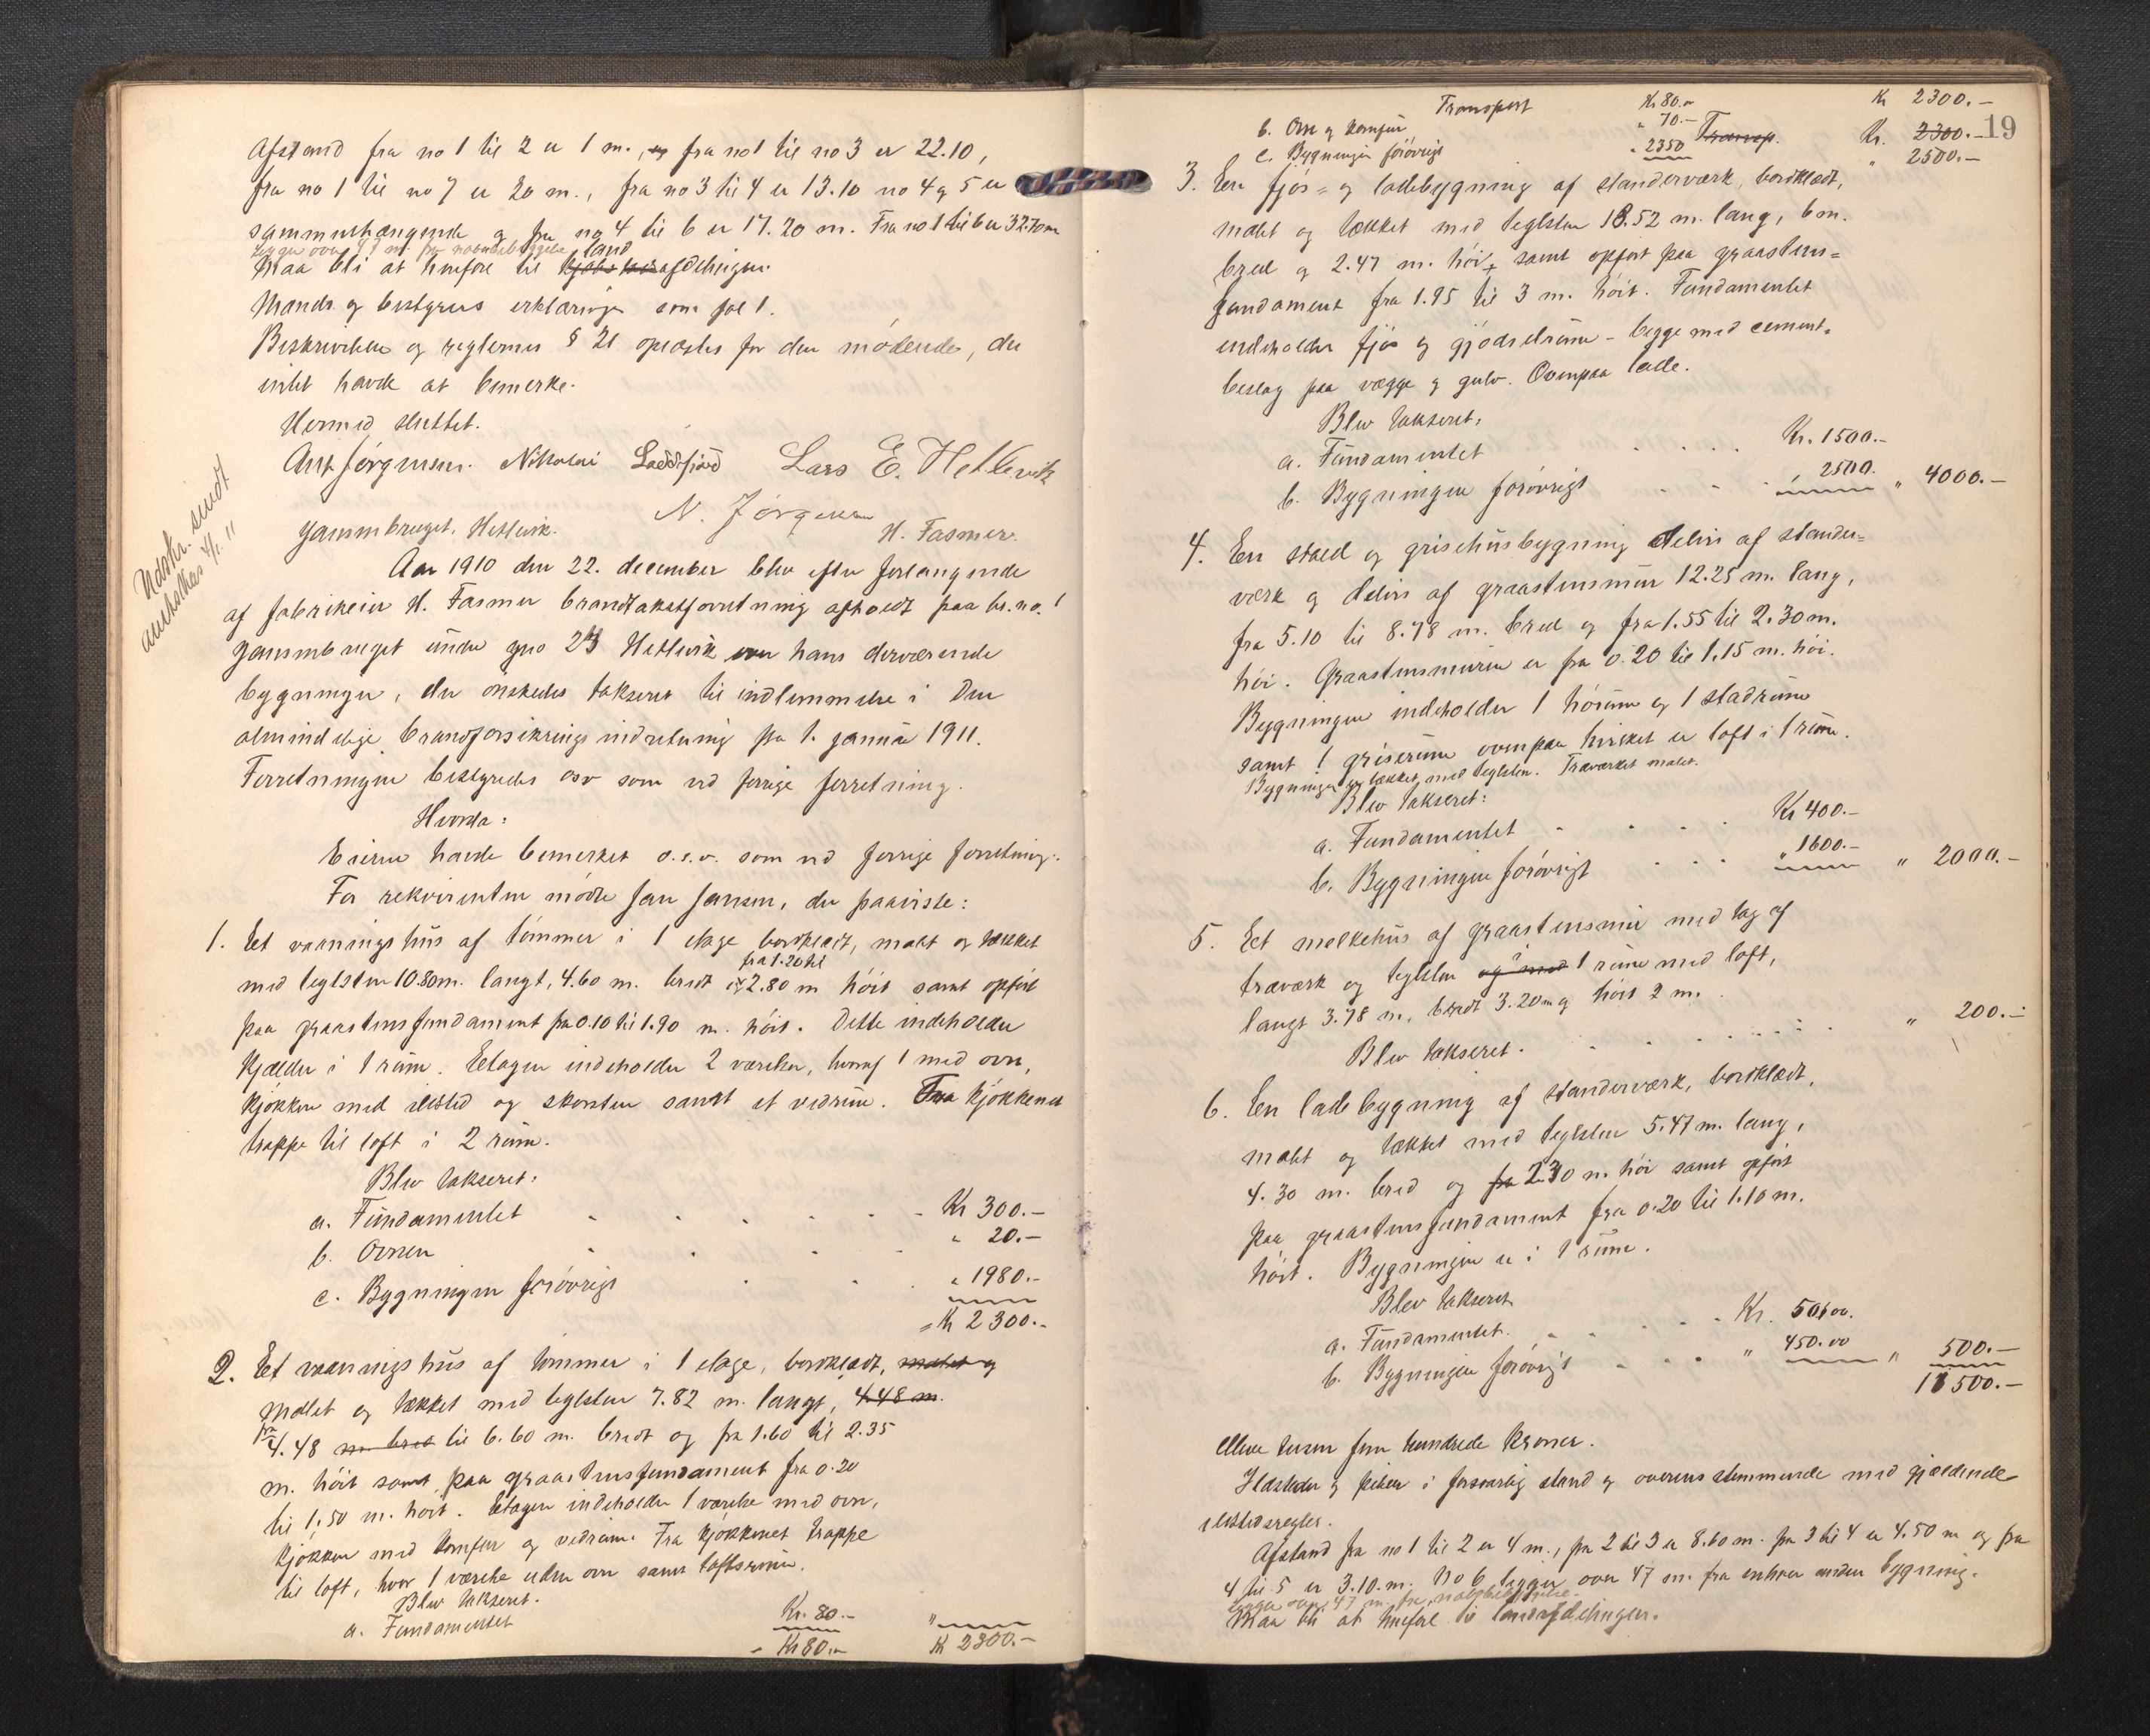 Afstand fra no 1 til 2 er 1 m., og fra no 1 til no 3 er 22.10,
fra no 1 til no 7 er 20 m., fra no 3 til 4 er 13.10 no 4 og 5 er
sammenhængende og fra no 4 til 6 er 17.20 m. Fra no 1 til 6 er 32.70 m
ligger over 47 m. fra nabobebyggelse land
Maa bli at henføre til afdelingen.
Mænds og bestyrers erklæringer som fol 1.
Beskrivelsen og reglernes § 21 oplæstes for den mødende, der
intet havde at bemerke.
Hermed sluttet.
Ant. Jørgensen. Nikolai Laddefjord Lars E. Hetlevik
N. Jørgensen
H. Fasmer.
Gammbruget, Hetlevik.
Udskr. sendt
anmeldelses 4/1 11
Aar 1910 den 22. december blev efter forlangende
af fabrikeier H. Fasmer brandtakstforretning afholdt paa br. no. 1
Gammbruget under gno 23 Hetlevik over hans derværende
bygninger, der ønskedes takseret til indlemmelse i Den
almindelige brandforsikringsindretning fra 1. januar 1911.
Forretningen bestyredes osv som ved forrige forretning.
Hvorda:
Eieren havde bemerket o.s.v. som ved forrige forretning.
For rekvirenten mødte Jan Jansen, der paaviste:
1. Et vaaningshus af tømmer i 1 etage bordklædt, malt og tækket
fra 1.20 til
med teglsten 10.80 m. langt, 4.60 m. bredt og 2.80 m høit samt opført
paa graastensfundament fra 0.10 til 1.90 m. høit. Dette indeholder
kjælder i 1 rum. Etagen indeholder 2 værelser, hvoraf 1 med ovn,
kjøkken med ildsted og skorsten samt et vedrum. Fra kjøkkenet
trappe til loft i 2 rum.
Blev takseret:
a. Fundamentet Kr 300.-
b. Ovnen " 20.-
c. Bygningen forøvrigt " 1980.-
= Kr 2300.-
2. Et vaaningshus af tømmer i 1 etage, bordklædt, malet og
malet og tækket med teglsten 7.82 m. langt, 4.48 m.
fra
4.48 m bret til 6.60 m. bredt og fra 1.60 til 2.35
m. høit samt paa graastensfundament fra 0.20
til 1.50 m. høit. Etagen indeholder 1 værelse med ovn,
kjøkken med komfur og vedrum. Fra kjøkkenet trappe
til loft, hvor 1 værelse uden ovn samt loftsrum.
Blev takseret.
a. Fundamentet Kr. 80.- "
= Kr 80.- Kr 2300.-
19
Transport Kr 80.- Kr 2300.-
b. Ovn og komfur " 70.- Transp. Kr. 2300.-
c. Bygningen forøvrigt " 2350 " 2500.-
3. En fjøs- og ladebygning af standerværk, bordklædt,
malet og tækket med teglsten 18.52 m. lang, 6 m.
bred og 2.47 m. høi, samt opført paa graastens-
fundament fra 1.95 til 3 m. høit. Fundamentet
indeholder fjøs og gjødselrum - begge med cement-
beslag paa vægge og gulv. Ovenpaa lade.
Blev takseret:
a. Fundamentet Kr. 1500.-
b. Bygningen forøvrigt " 2500. " 4000.-
4. En stald og grisehusbygning delvis af stander-
værk og delvis af graastensmur 12.25 m. lang,
fra 5.10 til 8.78 m. bred og fra 1.55 til 2.30 m.
høi. Graastensmuren er fra 0.20 til 1.15 m. høi.
Bygningen indeholder 1 hørum og 1 staldrum
samt 1 griserum ovenpaa hvilket er loft i 1 rum.
Bygningen er tækket med teglsten. Træværket malet.
Blev takseret:
a. Fundamentet Kr 400.-
b. Bygningen forøvrigt " 1600.- " 2000.-
5. Et melkehus af graastensmur med tag af
træværk og teglsten og med i 1 rum med loft,
langt 3.78 m, bredt 3.20 m og høit 2 m.
Blev takseret. " 200.-
6. En ladebygning af standerværk, bordklædt,
malt og tækket med teglsten 5.47 m. lang,
4.30 m. bred og fra 2.30 m. høi samt opført
paa graastensfundament fra 0.20 til 1.10 m.
høit. Bygningen er i 1 rum.
Blev takseret
a. Fundamentet. Kr. 50.00.
b. Bygningen forøvrigt " 450.00 " 500.-
11500.-
elleve tusen fem hundrede kroner.
Ildsteder og piber i forsvarlig stand og overensstemmende med gjældende
ildstedsregler.
Afstand fra no 1 til 2 er 4 m., fra 2 til 3 er 8.60 m. fra 3 til 4 er 4.50 m og fra
4 til 5 er 3.10. m. No 6 ligger over 47 m. fra enhver anden bygning.
ligger over 47 m. fra nabobebyggelse.
Maa bli at henføre til landafdelingen.